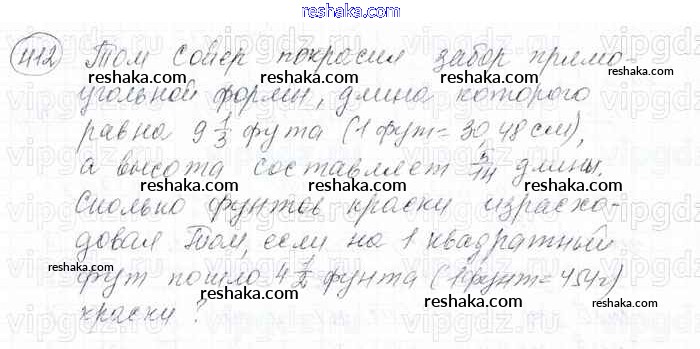 reshaka.com
412 Том Сойер покрасил забор прямо-
reshaka.com reshaka.com reshaka.com
угольной формы, длина которого
равна 9 1/3 фута (1 фут = 30,48 см),
reshaka.com reshaka.com reshaka.com
а высота составляет 5/14 длины.
reshaka.com reshaka.com reshaka.com
Сколько фунтов краски израсхо-
reshaka.com reshaka.com reshaka.com
довал Том, если на 1 квадратный
фут пошло 4 1/2 фунта (1 фунт = 454 г)
reshaka.com reshaka.com reshaka.com
краски?
reshaka.com